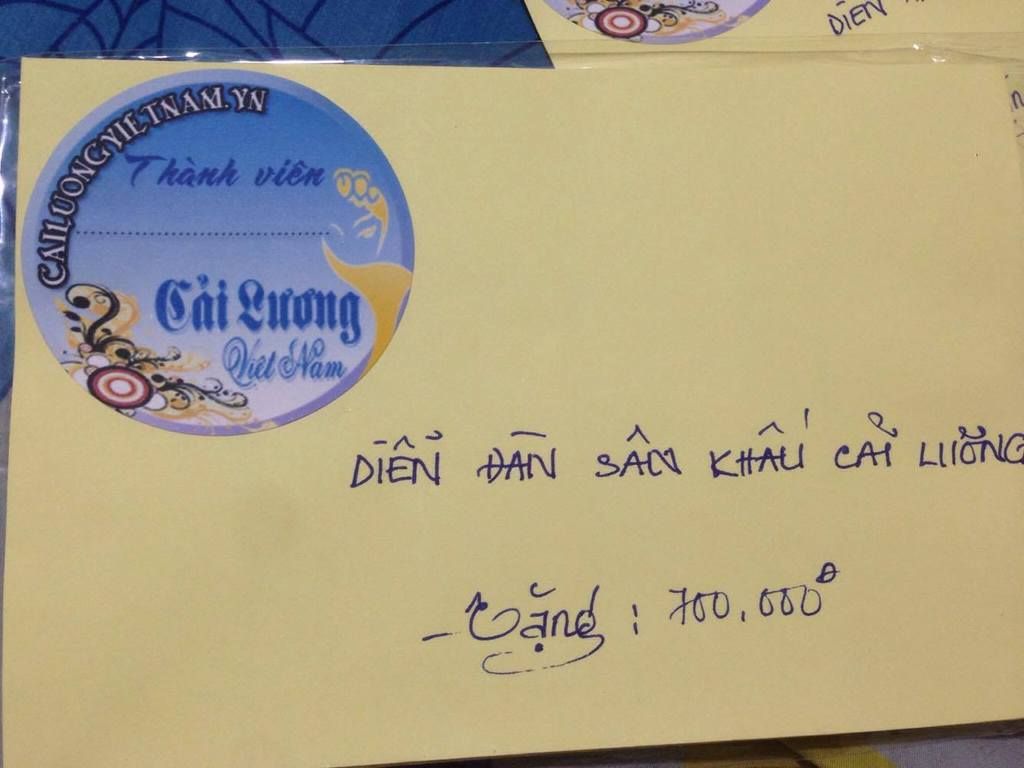 DIỄN
CAILUONGVIETNAM.VN
Thành viên
Cải Lương
Việt Nam
DIỂN ĐÀN SÂN KHẤU CẢI LƯƠNG
- Tặng : 700.000đ